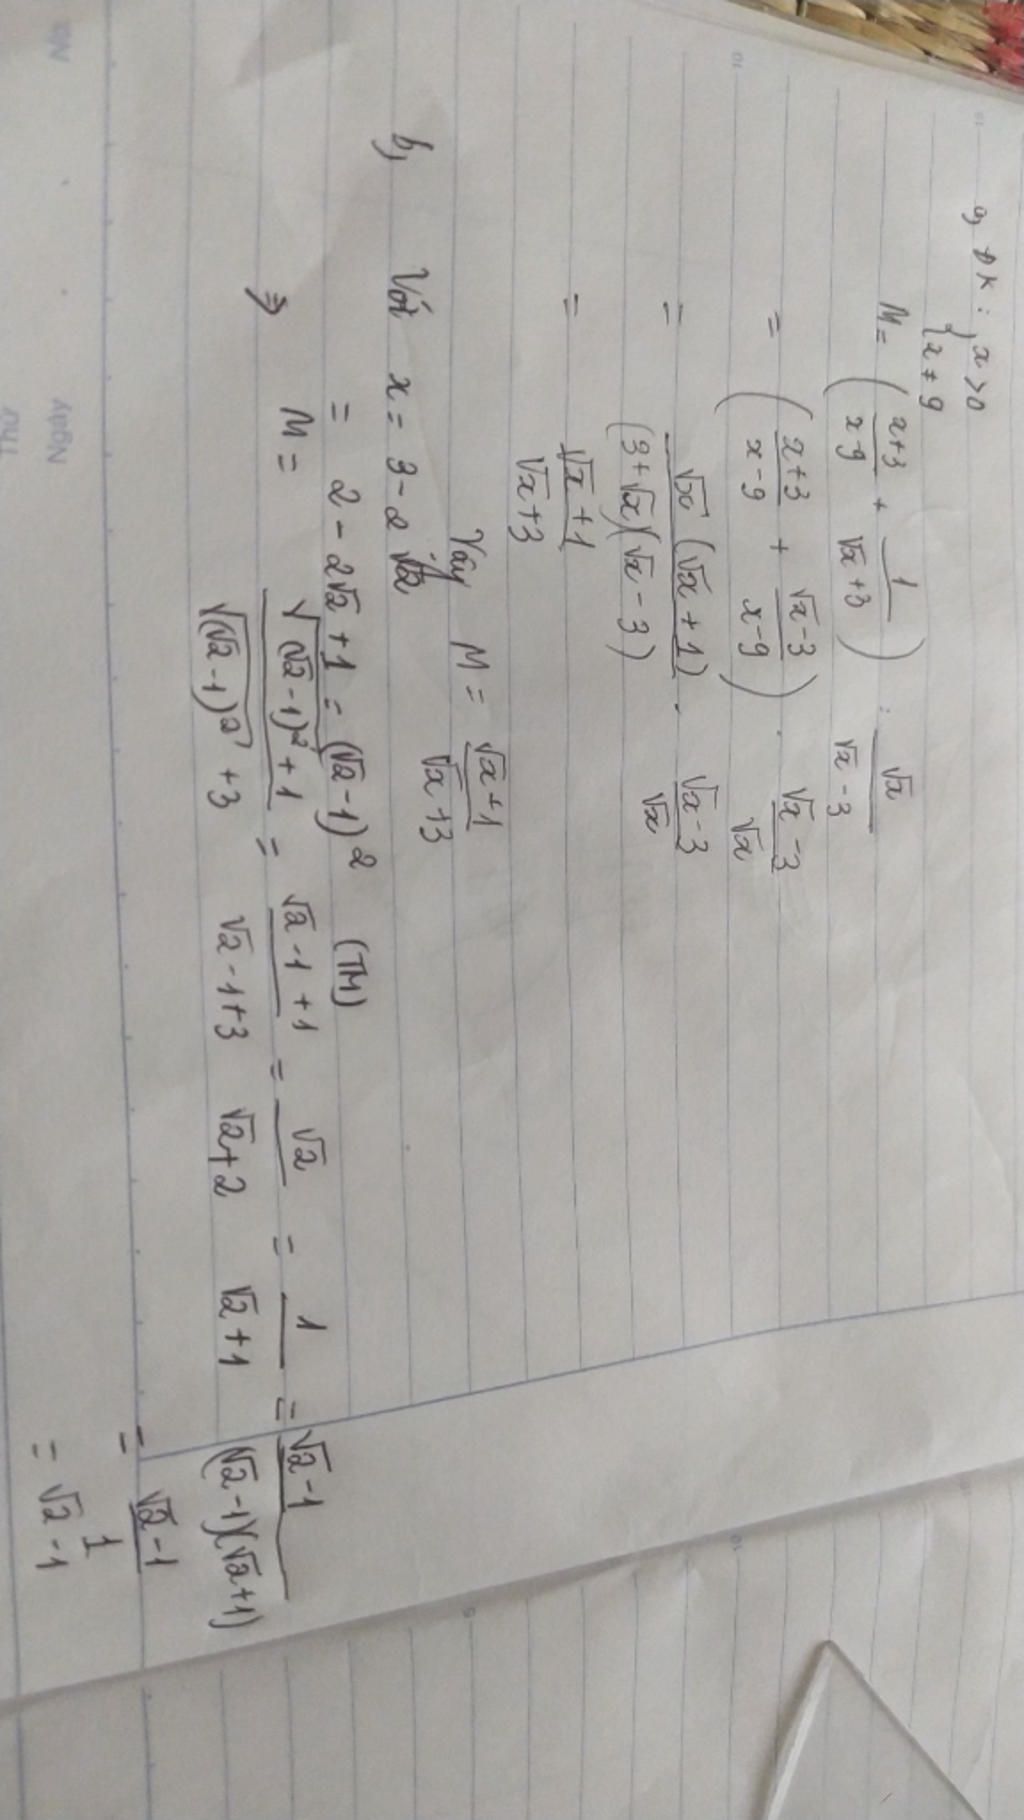 a, ĐK: { x > 0
x ≠ 9
M = ( (x+3)/(x-9) + 1/(√x+3) ) : √x/(√x-3)
= ( (x+3)/(x-9) + (√x-3)/(x-9) ) . (√x-3)/√x
= √x(√x+1)/((3+√x)(√x-3)) . (√x-3)/√x
= (√x+1)/(√x+3)
Vậy M = (√x+1)/(√x+3)
b, Với x = 3 - 2√2
= 2 - 2√2 + 1 = (√2-1)² (TM)
⇒ M = (√(√2-1)² + 1)/(√(√2-1)² + 3) = (√2-1+1)/(√2-1+3) = √2/(√2+2) = 1/(√2+1) = (√2-1)/((√2-1)(√2+1))
= (√2-1)/1
= √2-1
Thứ
Ngày
No